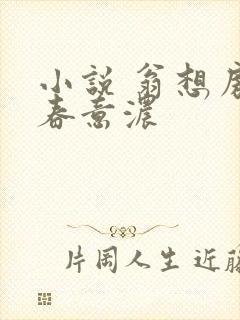 小説 翁想
春意濃
片岡人生 近藤